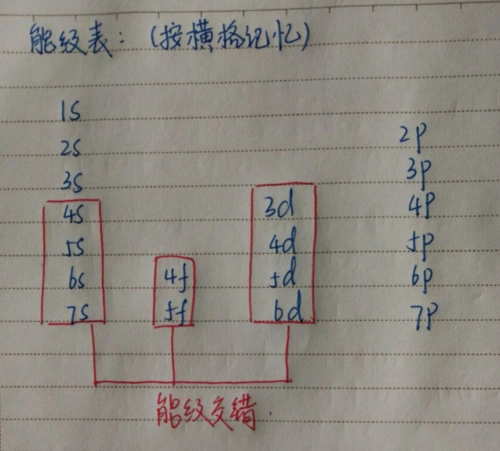 能级表：（按横格记忆）
1s
2s 2p
3s 3p
4s 3d 4p
5s 4d 5p
6s 4f 5d 6p
7s 5f 6d 7p
能级交错.